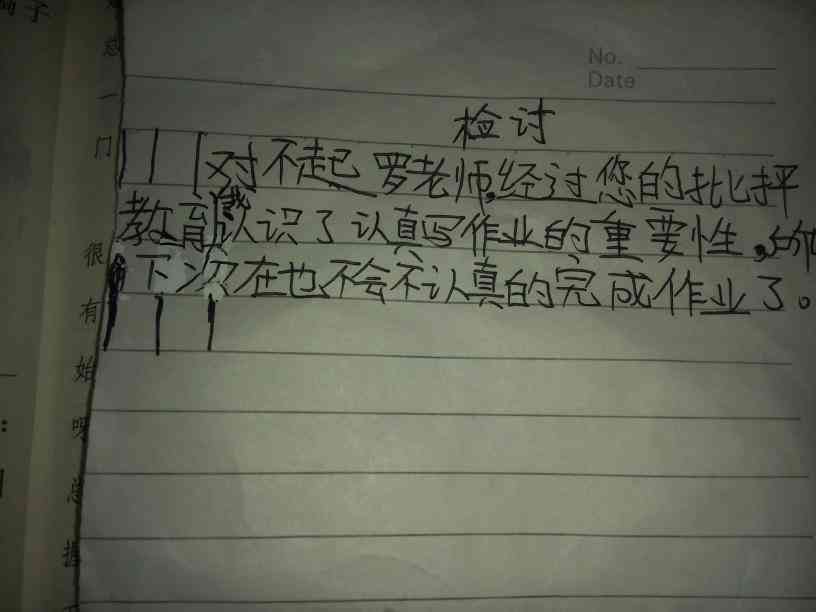 No.
Date
检讨
对不起罗老师,经过您的批评
教育我认识了认真写作业的重要性,
下次在也不会不认真的完成作业了。
一
门
很
有
始
呀
总
握